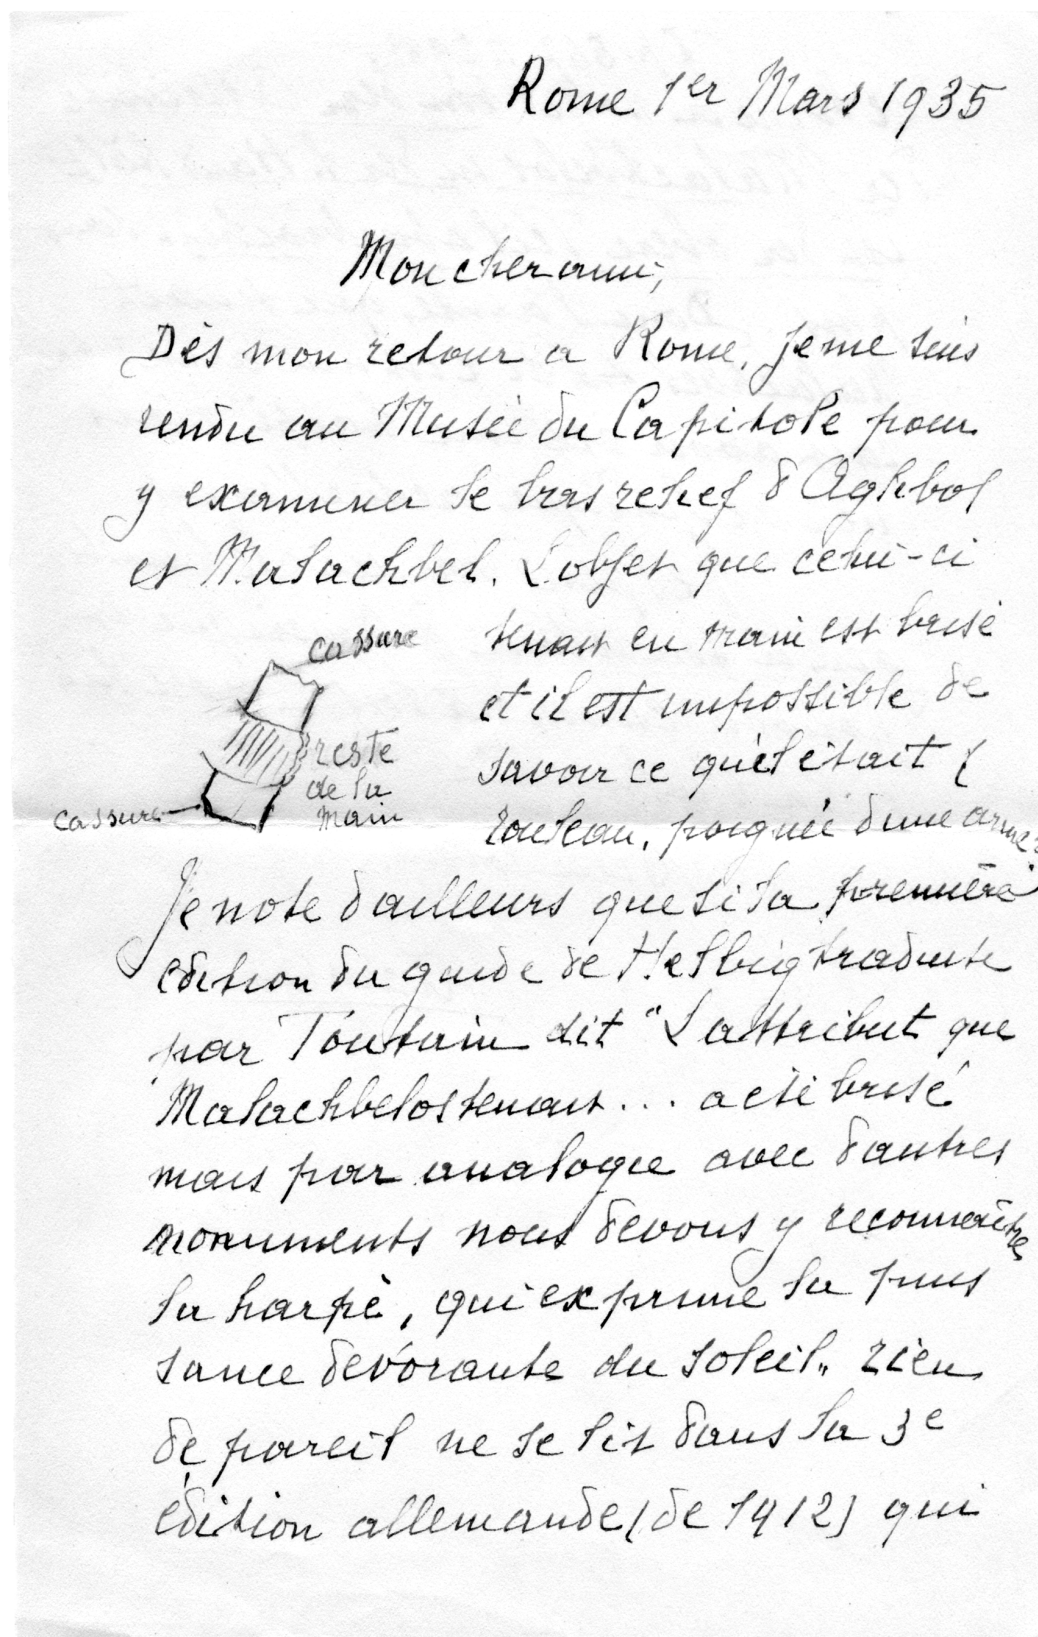 Rome 1er Mars 1935
Mon cher ami,
Dès mon retour a Rome, je me suis
rendu au Musée du Capitole pour
y examiner le bas relief d Aglibol
et Malachbel. L'objet que celui-ci
tenait en main est brisé
et il est impossible de
savoir ce qu'il était (
rouleau, poignée d'une arme?
cassure
reste
de la
main
cassure
Je note d'ailleurs que si la première
édition du guide de Helbig traduite
par Toutain dit "L'attribut que
Malachbelos tenait... a été brisé
mais par analogie avec d'autres
monuments nous devons y reconnaître
la harpè, qui exprime la puis
sance dévorante du soleil" rien
de pareil ne se lit dans la 3e
édition allemande (de 1912) qui